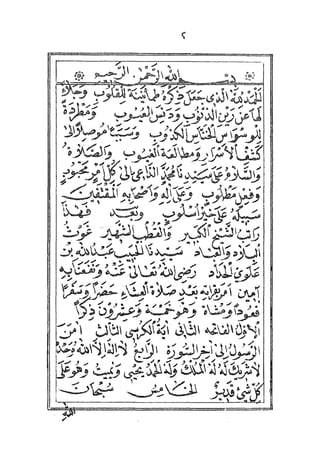 ٢
بسم الله الرحمن الرحيم
الحمد لله الذى جعل ذكره طمأنينة للقلوب وجلاء
لها عن رين الذنوب ودنس العيوب ومطردة
للوسواس الخناس الكذوب وسببا موصلا الى
كشف الأسرار ومطالعة الغيوب والصلاة
والسلام على سيدنا محمد الداعى الى كل أمر محبوب
وفعل مطلوب وعلى آله وأصحابه المقتفين
سبيله على خير أسلوب وبعد فهذا
راتب الشيخ الكبير والقطب الشهير غوث
البلاد والعباد سيدنا الحبيب عبد الله بن
علوى الحداد رضى الله تعالى عنه ونفعنا به
آمين أمر بقرائته بعد صلاة العشاء حضرا وسفرا
قعودا ومشاة وهو خمسة وعشرون ذكرا
الأول الفاتحه الثانى آية الكرسى الثالث آمن
الرسول الى آخر السورة الرابع لا اله الا الله وحده
لا شريك له له الملك وله الحمد يحيى ويميت وهو على
كل شئ قدير الخامس سبحان
الله